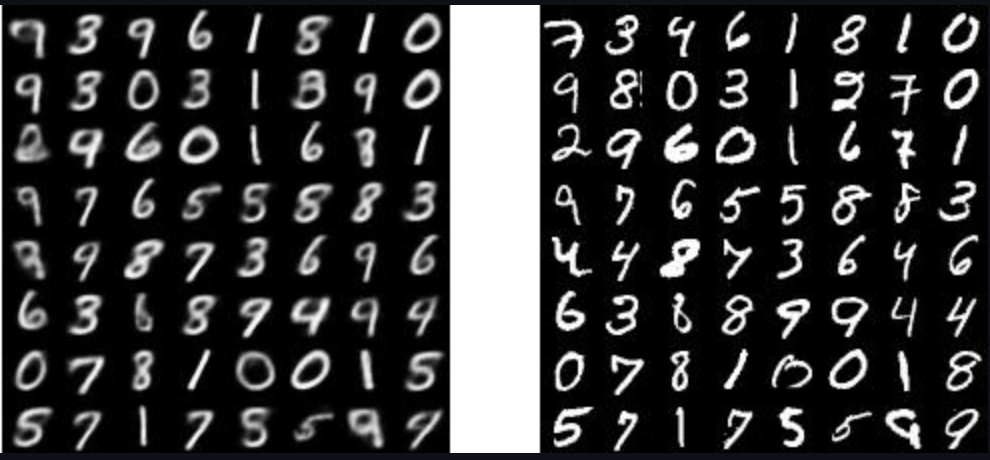 9 3 9 6 1 8 1 0
9 3 0 3 1 3 9 0
9 6 0 1 6 8 1
9 7 6 5 5 8 8 3
9 8 7 3 6 9 6
6 3 6 8 9 4 9 9
0 7 8 1 0 0 1 5
5 7 1 7 5 5 9 9
7 3 4 6 1 8 1 0
9 8 0 3 1 2 7 0
2 9 6 0 1 6 7 1
9 7 6 5 5 8 8 3
4 4 8 7 3 6 4 6
6 3 8 8 9 9 4 4
0 7 8 1 0 0 1 8
5 7 1 7 5 5 9 9